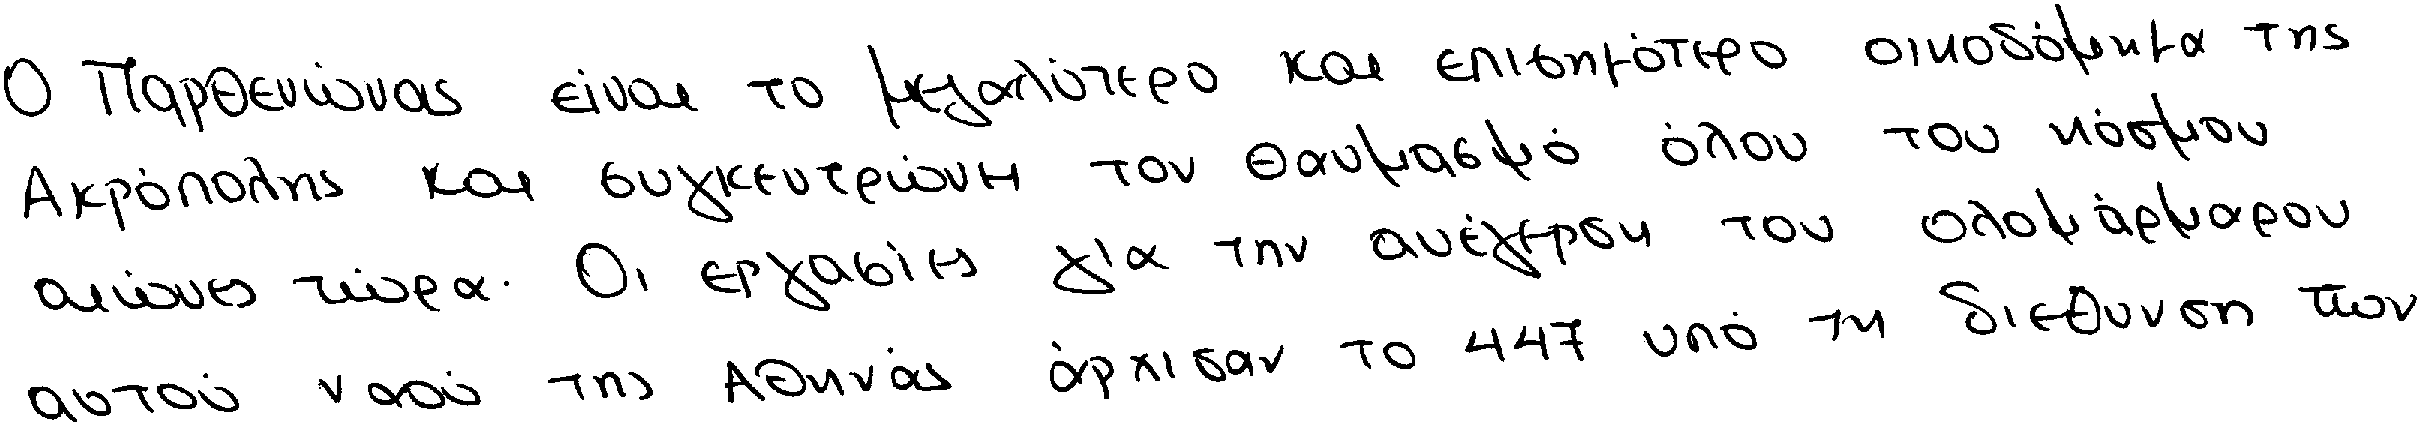 Ο Παρθενώνας είναι το μεγαλύτερο και επισημότερο οικοδόμημα της
Ακρόπολης και συγκεντρώνει τον θαυμασμό όλου του κόσμου
αιώνες τώρα. Οι εργασίες για την ανέγερση του ολομάρμαρου
αυτού ναού της Αθηνάς άρχισαν το 447 υπό τη διεύθυνση των